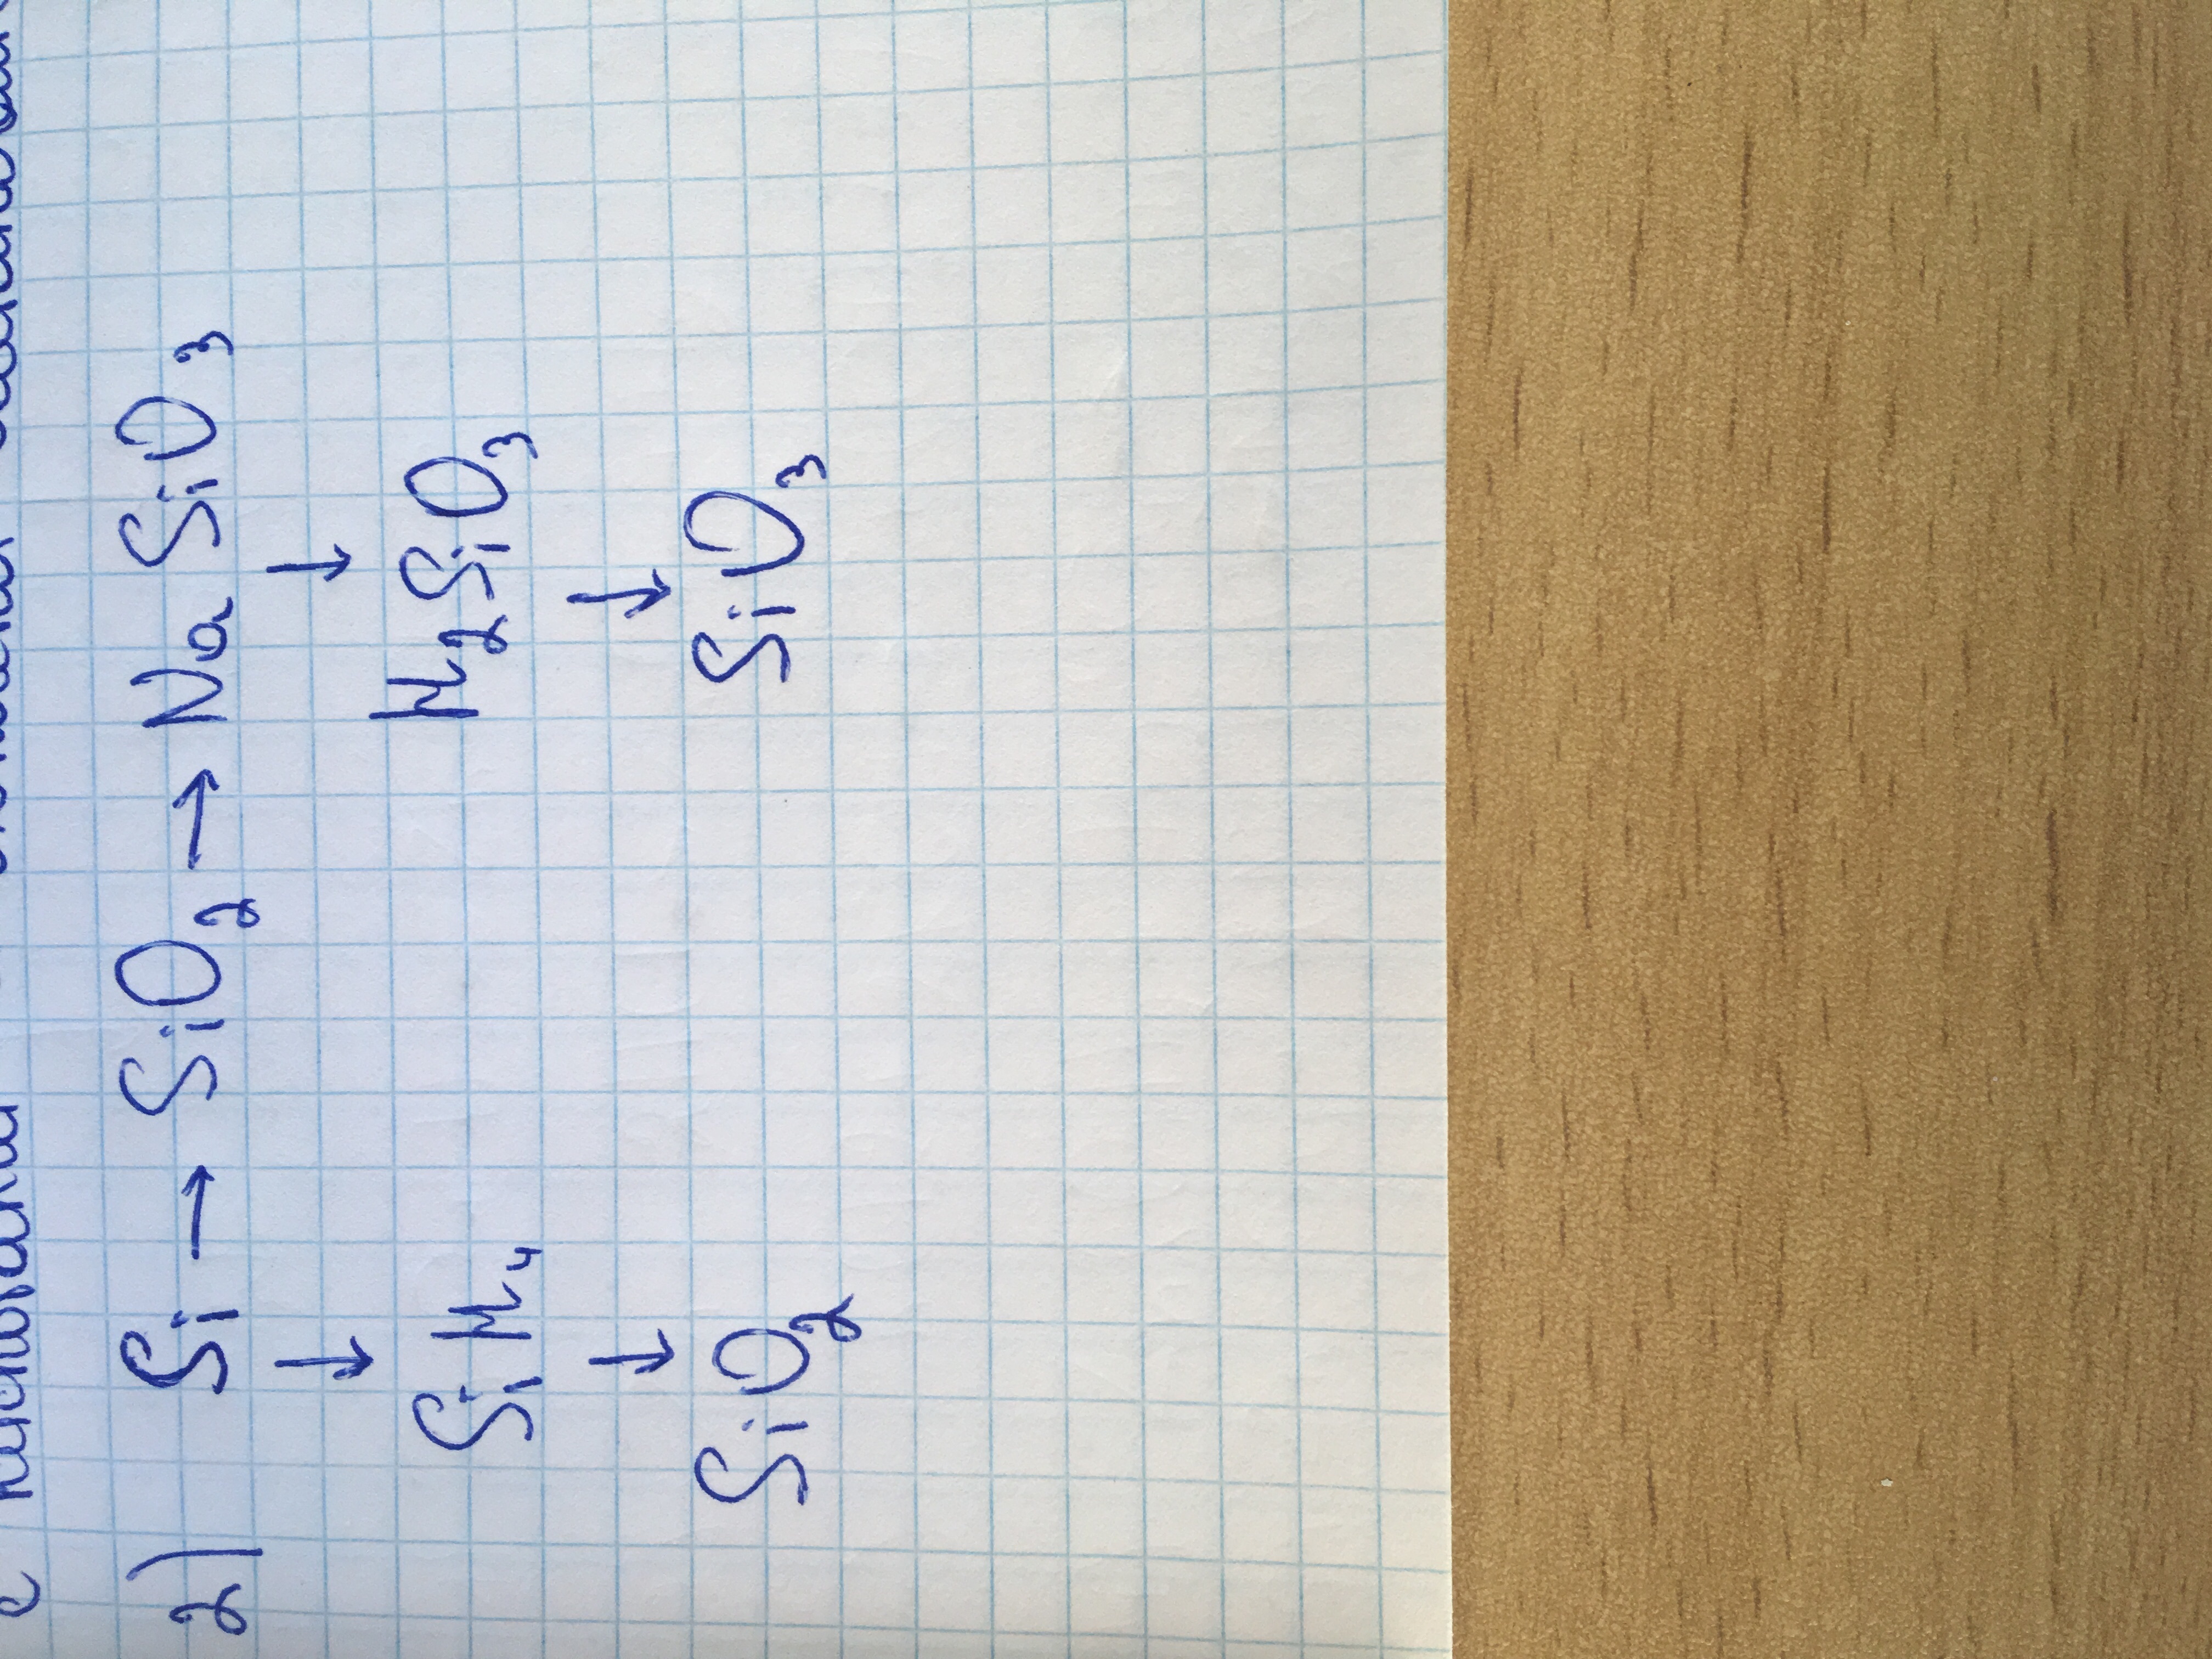 2) Si → SiO₂ → Na SiO₃
↓ ↓
SiH₄ H₂SiO₃
↓ ↓
SiO₂ SiO₃